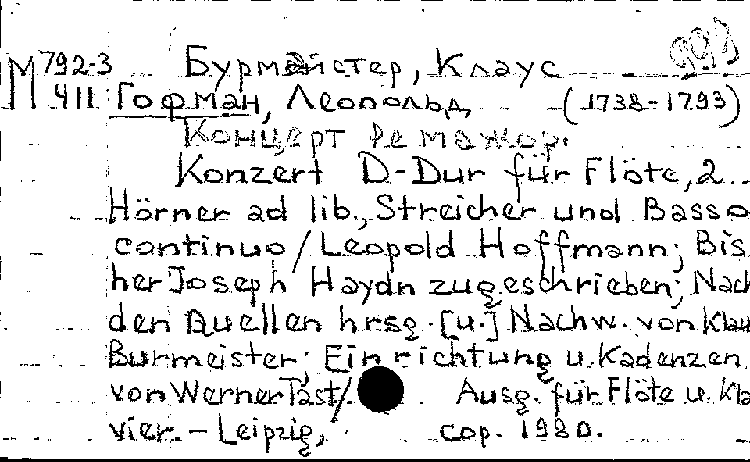 М 792-3 Бурмайстер, Клаус
411 Гофман, Леопольд (1738-1793)
Концерт Ре мажор.
Konzert D-Dur für Flöte, 2
Hörner ad lib., Streicher und Basso
continuo / Leopold Hoffmann; Bis
her Joseph Haydn zugeschrieben; Nach
den Quellen hrsg. [u.] Nachw. von Klau
Burmeister; Einrichtung u. Kadenzen
von Werner Tast/. Ausg. für Flöte u. Kla
vier. – Leipzig, cop. 1980.